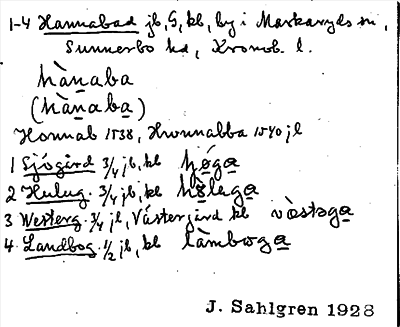 1-4 Hannabad jb, G, kb, by i Markaryds sn,
Sunnerbo hd, Kronob. l.
hàn̲aba
(hàn̲aba̲)
Honnab 1538, Hwnnabba 1540 jl
1 Sjögård 3/4 jb, kb hø̲ga̲
2 Hulug. 3/4 jb, kb hø̲laga̲
3 Westerg. 3/4 jl, Västergård kb væ̀stəga̲
4 Landbog. 1/2 jb, kb làmbəga̲
J. Sahlgren 1928